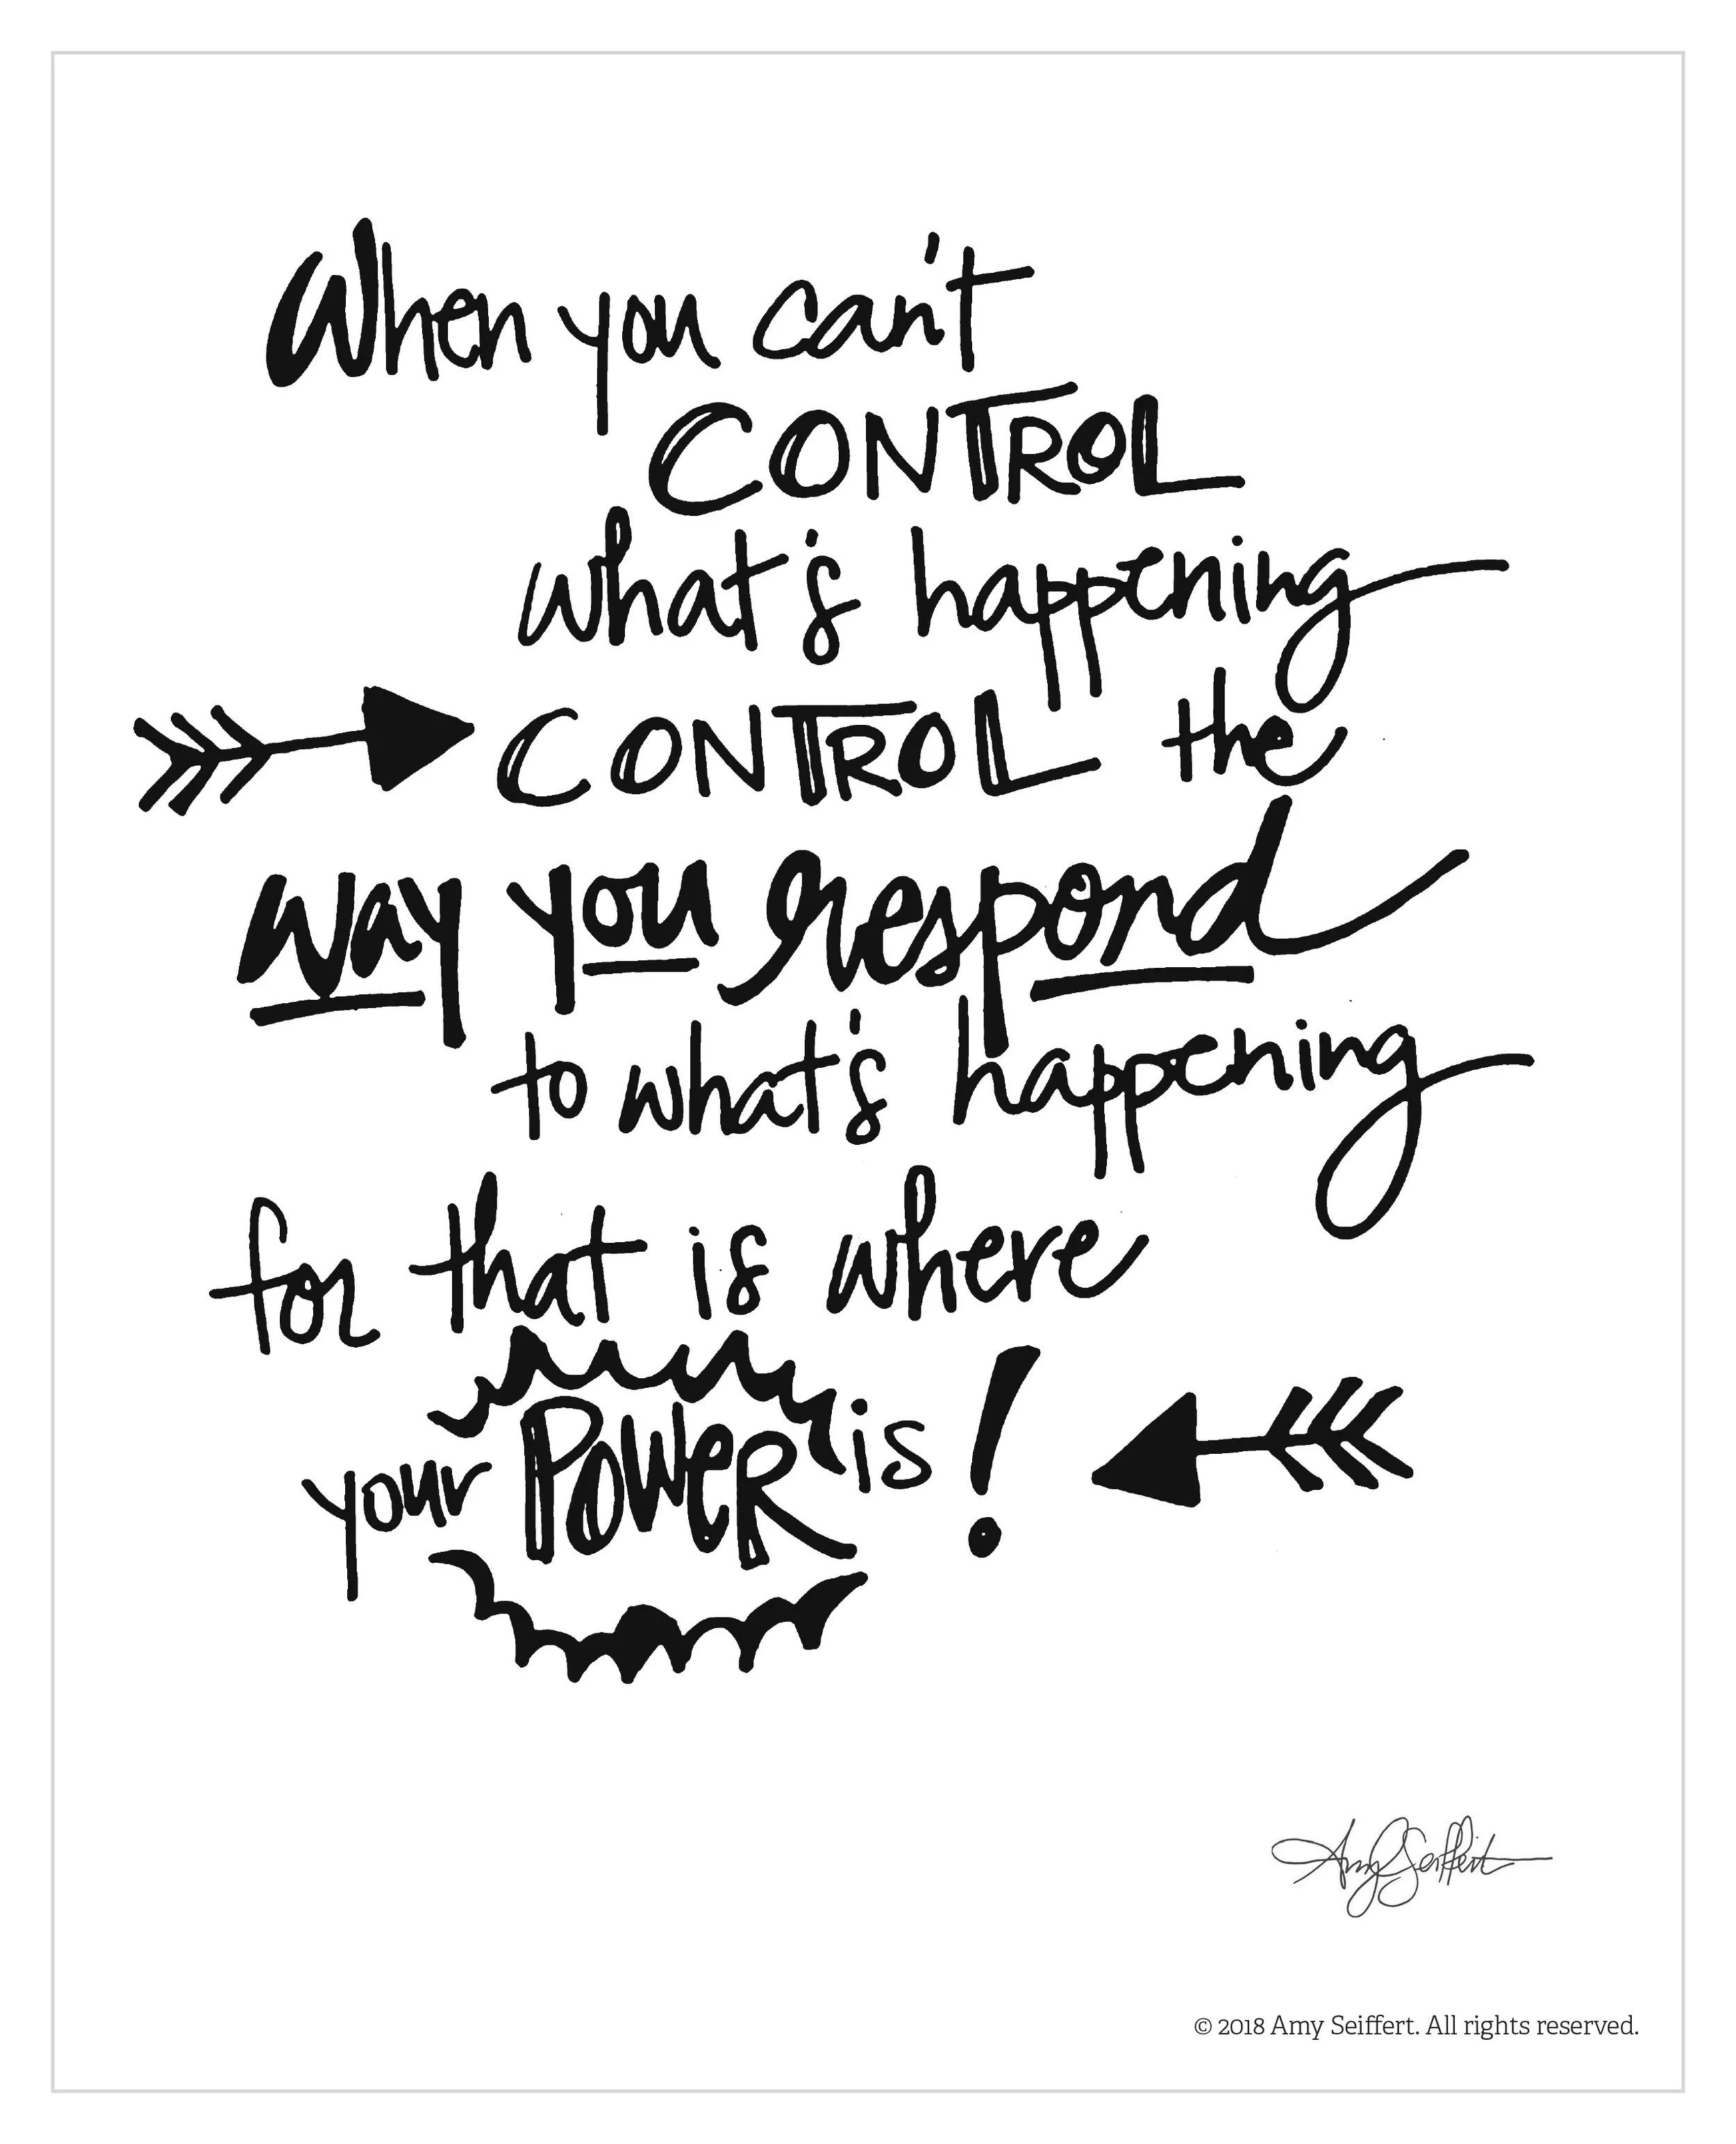 When you can't
CONTROL
what's happening
CONTROL the
way you respond
to what's happening
for that is where
your POWER is!
Amy Seiffert
© 2018 Amy Seiffert. All rights reserved.